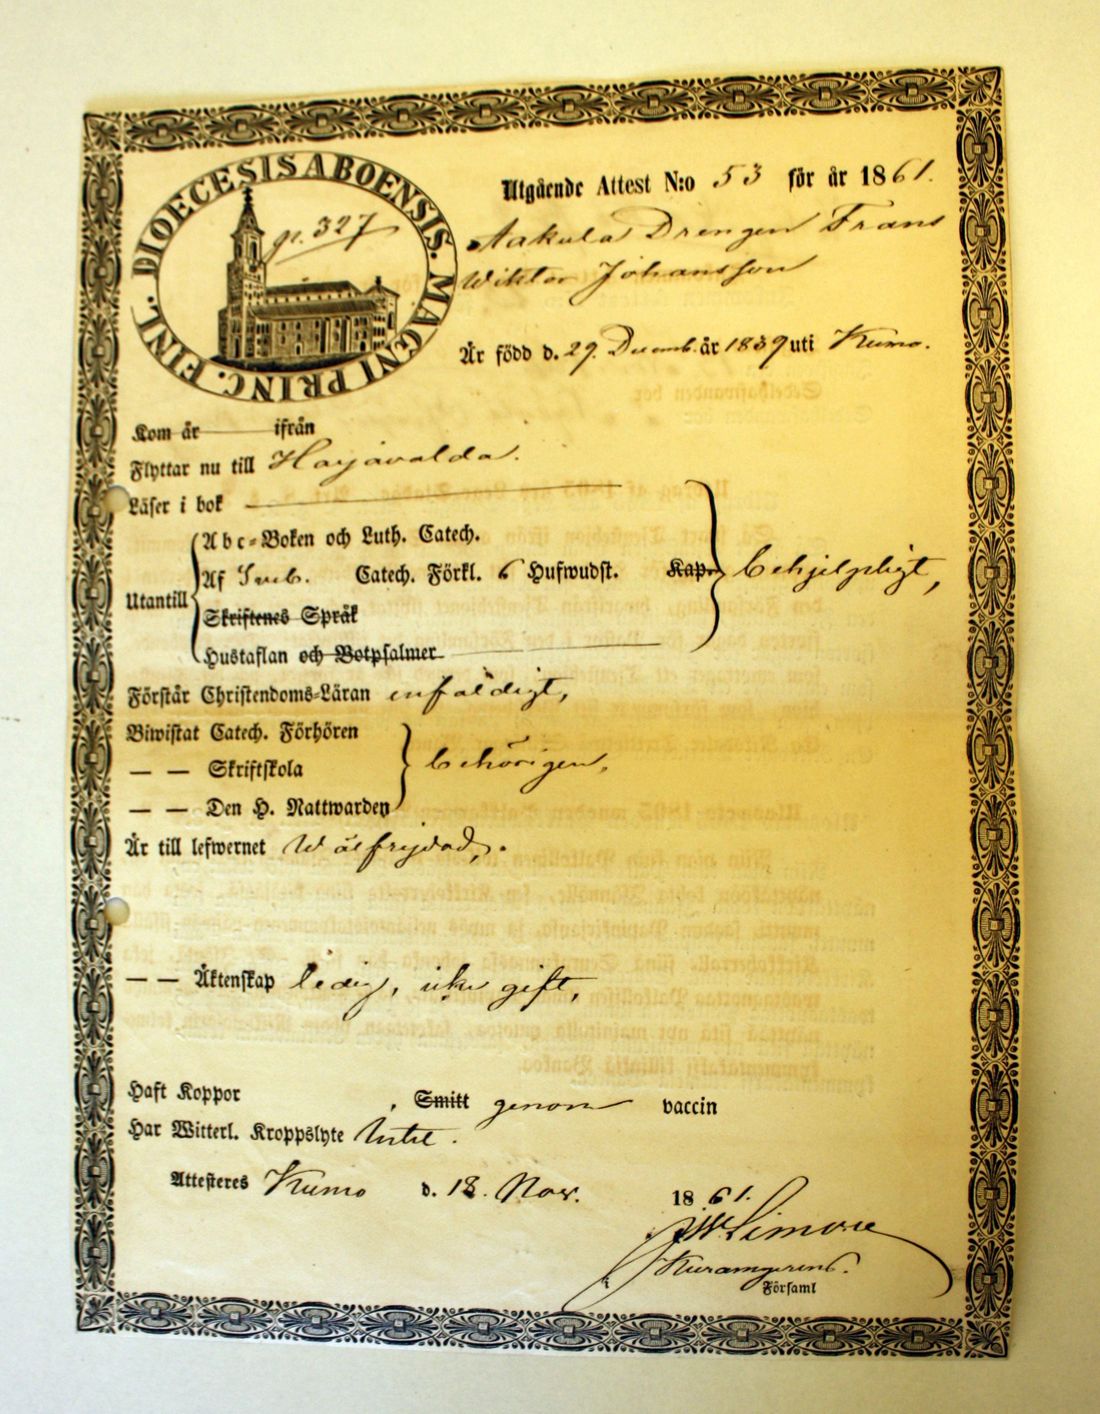 DIOECESIS ABOENSIS. MAGNI PRINC. FINL.
p. 327
Utgående Attest N:o 53 för år 1861.
Aakula Drengen Frans
Wiktor Johansson
Är född d. 29. Decemb. år 1839 uti Kumo.
Kom år ifrån
Flyttar nu till Harjavalda.
Läser i bok
Abc-Boken och Luth. Catech.
Af Sveb. Catech. Förkl. 6 Hufwudst. Kap.
behjelpligt,
Utantill
Skriftenes Språk
Hustaflan och Botpsalmer
Förstår Christendoms-Läran enfaldigt,
Biwistat Catech. Förhören
— — Skriftskola
behörigen,
— — Den H. Nattwarden
Är till lefwernet wälfrejdad,.
— — Äktenskap ledig, icke gift,
Haft Koppor , Smitt genom vaccin
Har Witterl. Kroppslyte Intet.
Attesteres Kumo d. 18. Nov. 1861.
Församl